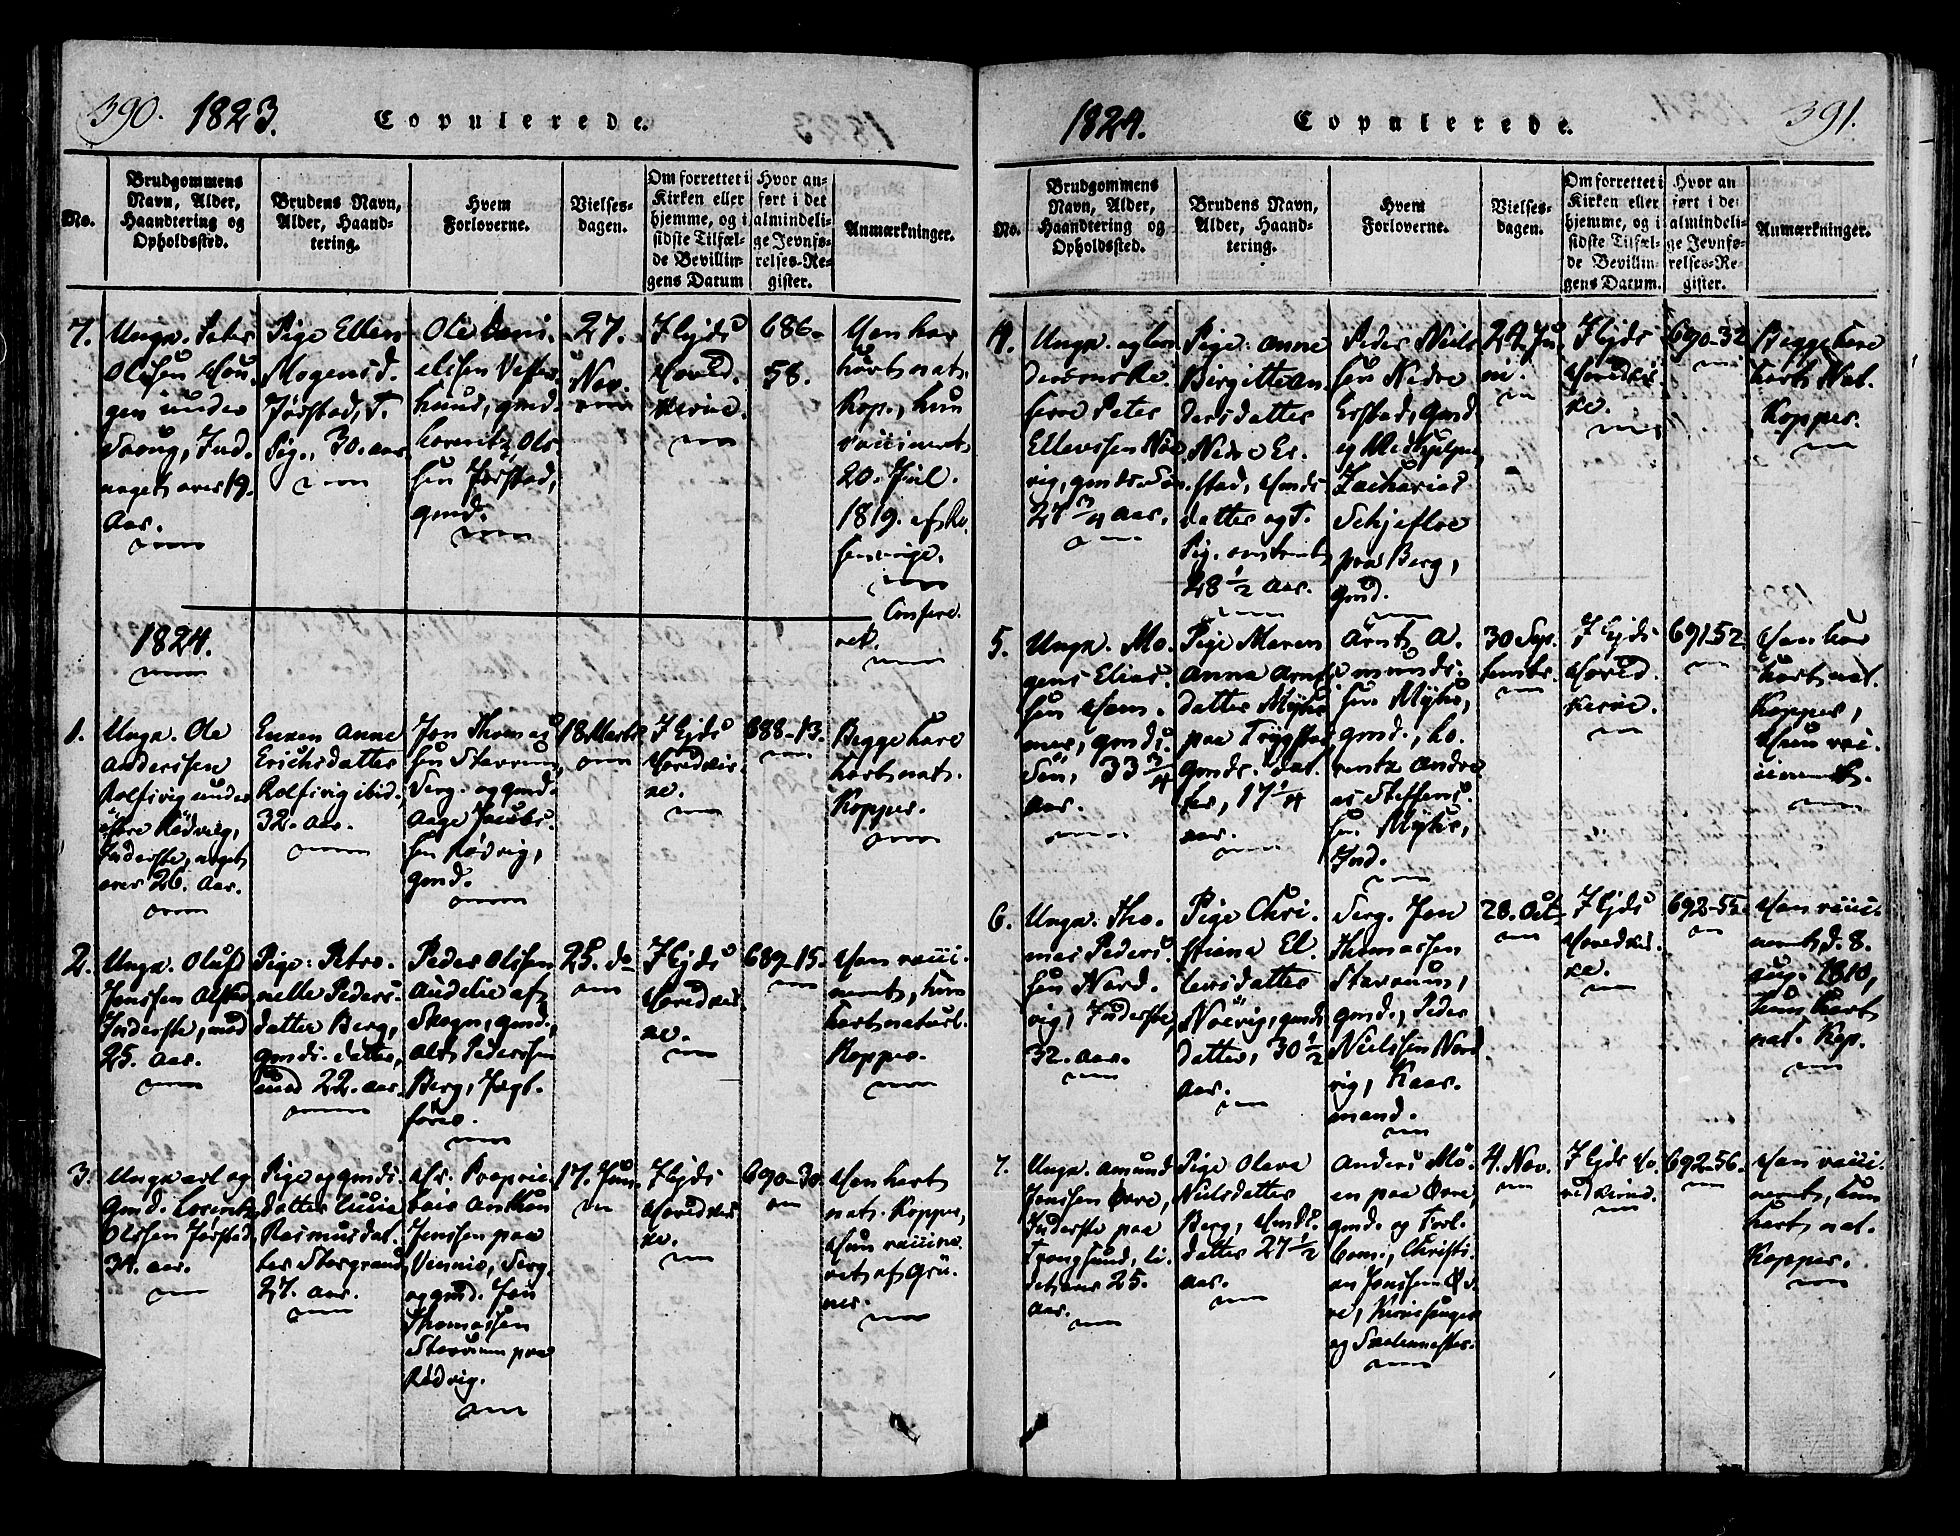 390. 1823. Copulerede.
No.
Brudgommens
Navn, Alder,
Haandtering og
Opholdssted.
Brudens Navn,
Alder, Haand-
tering.
Hvem
Forloverne.
Vielses-
dagen.
Om forrettet i
Kirken eller
hjemme, og i
sidste Tilfæl-
de Bevillin-
gens Datum
Hvor an-
ført i det
almindeli-
ge Jevnfø-
relses-Re-
gister.
Anmærkninger.
7.
Ungk. Peter
Olssen
gen under
Ind.
noget over 19.
Aar.
Pige Ellen
Mogensd.
Jørstad, T.
Pig., 30. aar
Ole Dani-
elssen Vester-
hund, gmd.
Lorentz Ols-
sen Jørstad,
gmd.
27.
Nov.
I Ejds
Hoved-
kirke.
686-
58.
Han har
havt nat.
Kop., hun
vaccineret
20. Jul.
1819. af Ro-
senvinge.
Confere-
ret.
1824.
1.
Ungk. Ole
Anderssen
Rolfsvig under
Rødvig,
Inderste, noget
over 26. Aar.
Enken Anne
Erichsdatter
Rolfsvig ibid.
32. Aar.
Jon Thomas-
sen Stavrum,
Serg. og gmd.
Aage Jacobs-
sen Rødvig,
gmd.
18. Marts
I Ejds
Hovedkir-
ke.
688-13.
Begge have
havt nat.
Kopper.
2.
Ungk. Oluf
Jonssen
Inderste, med
25. Aar.
Pige: Petro-
nelle Peders-
datter Berg,
gmds. datter,
med 22. aar.
Peder Olssen
Audelie af
Skogn, gmd.,
Pederssen
Berg, Jægt-
fører.
25. do
I Ejds
Hovedkir-
ke.
689-15.
Han vacci-
neret, hun
havt naturl.
Kopper.
3.
Ungkarl og
Gmd. Lorentz
Olssen Jørstad
34. aar.
Pige og gmds.
datter Lucia
Rasmusdat-
ter Storgrand
27. aar.
Hr. Proprie-
tair Anthon
Jenssen paa
Vennis, Serg.
og gmd. Jon
Thomassen
Stavrum paa
Rødvig.
17. Juni
I Ejds
Hovedkir-
ke.
690-30.
Han havt
nat. Kopper,
Hun vaccine-
ret af Grü-
ner.
1824. Copulerede. 391.
No.
Brudgommens
Navn, Alder,
Haandtering og
Opholdssted.
Brudens Navn,
Alder, Haand-
tering.
Hvem
Forloverne.
Vielses-
dagen.
Om forrettet i
Kirken eller
hjemme, og i
sidste Tilfæl-
de Bevillin-
gens Datum.
Hvor an
ført i de
almindeli-
ge Jevnfø-
relses-Re-
gister.
Anmærkninger.
4.
Ungk. og
Peter
Ellevssen Nøe-
vig, gmds. Søn.
27 3/4 aar.
Pige: Anne
Birgitte An-
dersdatter
Nedre Er-
stad, Hmds
datter og T.
Pig. omtrent
48 1/2 Aar.
Peder Niels-
sen Nedre
Erstad, gmd
og Medhjelper,
Zacharias
Schjefloe
paa Berg,
gmd.
24. Ju-
ni.
I Ejds
Hovedkir-
ke.
690-32
Begge have
havt Nat.
Kopper.
5.
Ungk. Mo-
gens Elias-
sen Ham-
mer, gmds.
Søn, 33 3/4
aar.
Pige Maren
Anna Arnts-
datter Mykle
paa Trygstad
gmds. Dat-
ter, 17 1/4
aar.
Arnt A-
munds-
sen Mykle,
gmd., Lo-
rentz Andre-
as Steffens-
sen Mykle,
Ind.
30 Sep-
tembr.
I Ejds
Hoved-
kirke.
691-52.
Han har
havt nat.
Kopper,
Hun vac-
cineret.
6.
Ungk. Tho-
mas Peders-
sen Nord-
vig, Inderste,
32. aar.
Pige Chri-
stiana El-
levsdatter
Nøevig, gmds
datter, 30 1/2
aar.
Serg. Jon
Thomassen
Stavrum,
gmd., Peder
Nielssen Nord-
vig, Kaar-
mand.
28. Oct.
I Ejds
Hovedkir-
ke.
692-55.
Han vacci-
neret d. 8.
Aug. 1810,
hun havt
nat. Kop.
7.
Ungk. Amund
Jonssen Øvre,
Inderste paa
Trongsund, li-
det over 25.
aar.
Pige Olava
Nielsdatter
Berg, Hmds
datter 27 1/2
aar.
Anders Mo-
en paa Øvre,
gmd. og Forl.
Com., Christi-
an Jonssen Øv-
re, Kirkesanger
og Skolemester.
4. Nov.
I Ejds Ho-
vedkirke.
692-56.
Han vacci-
neret, hun
havt nat.
Kopper.